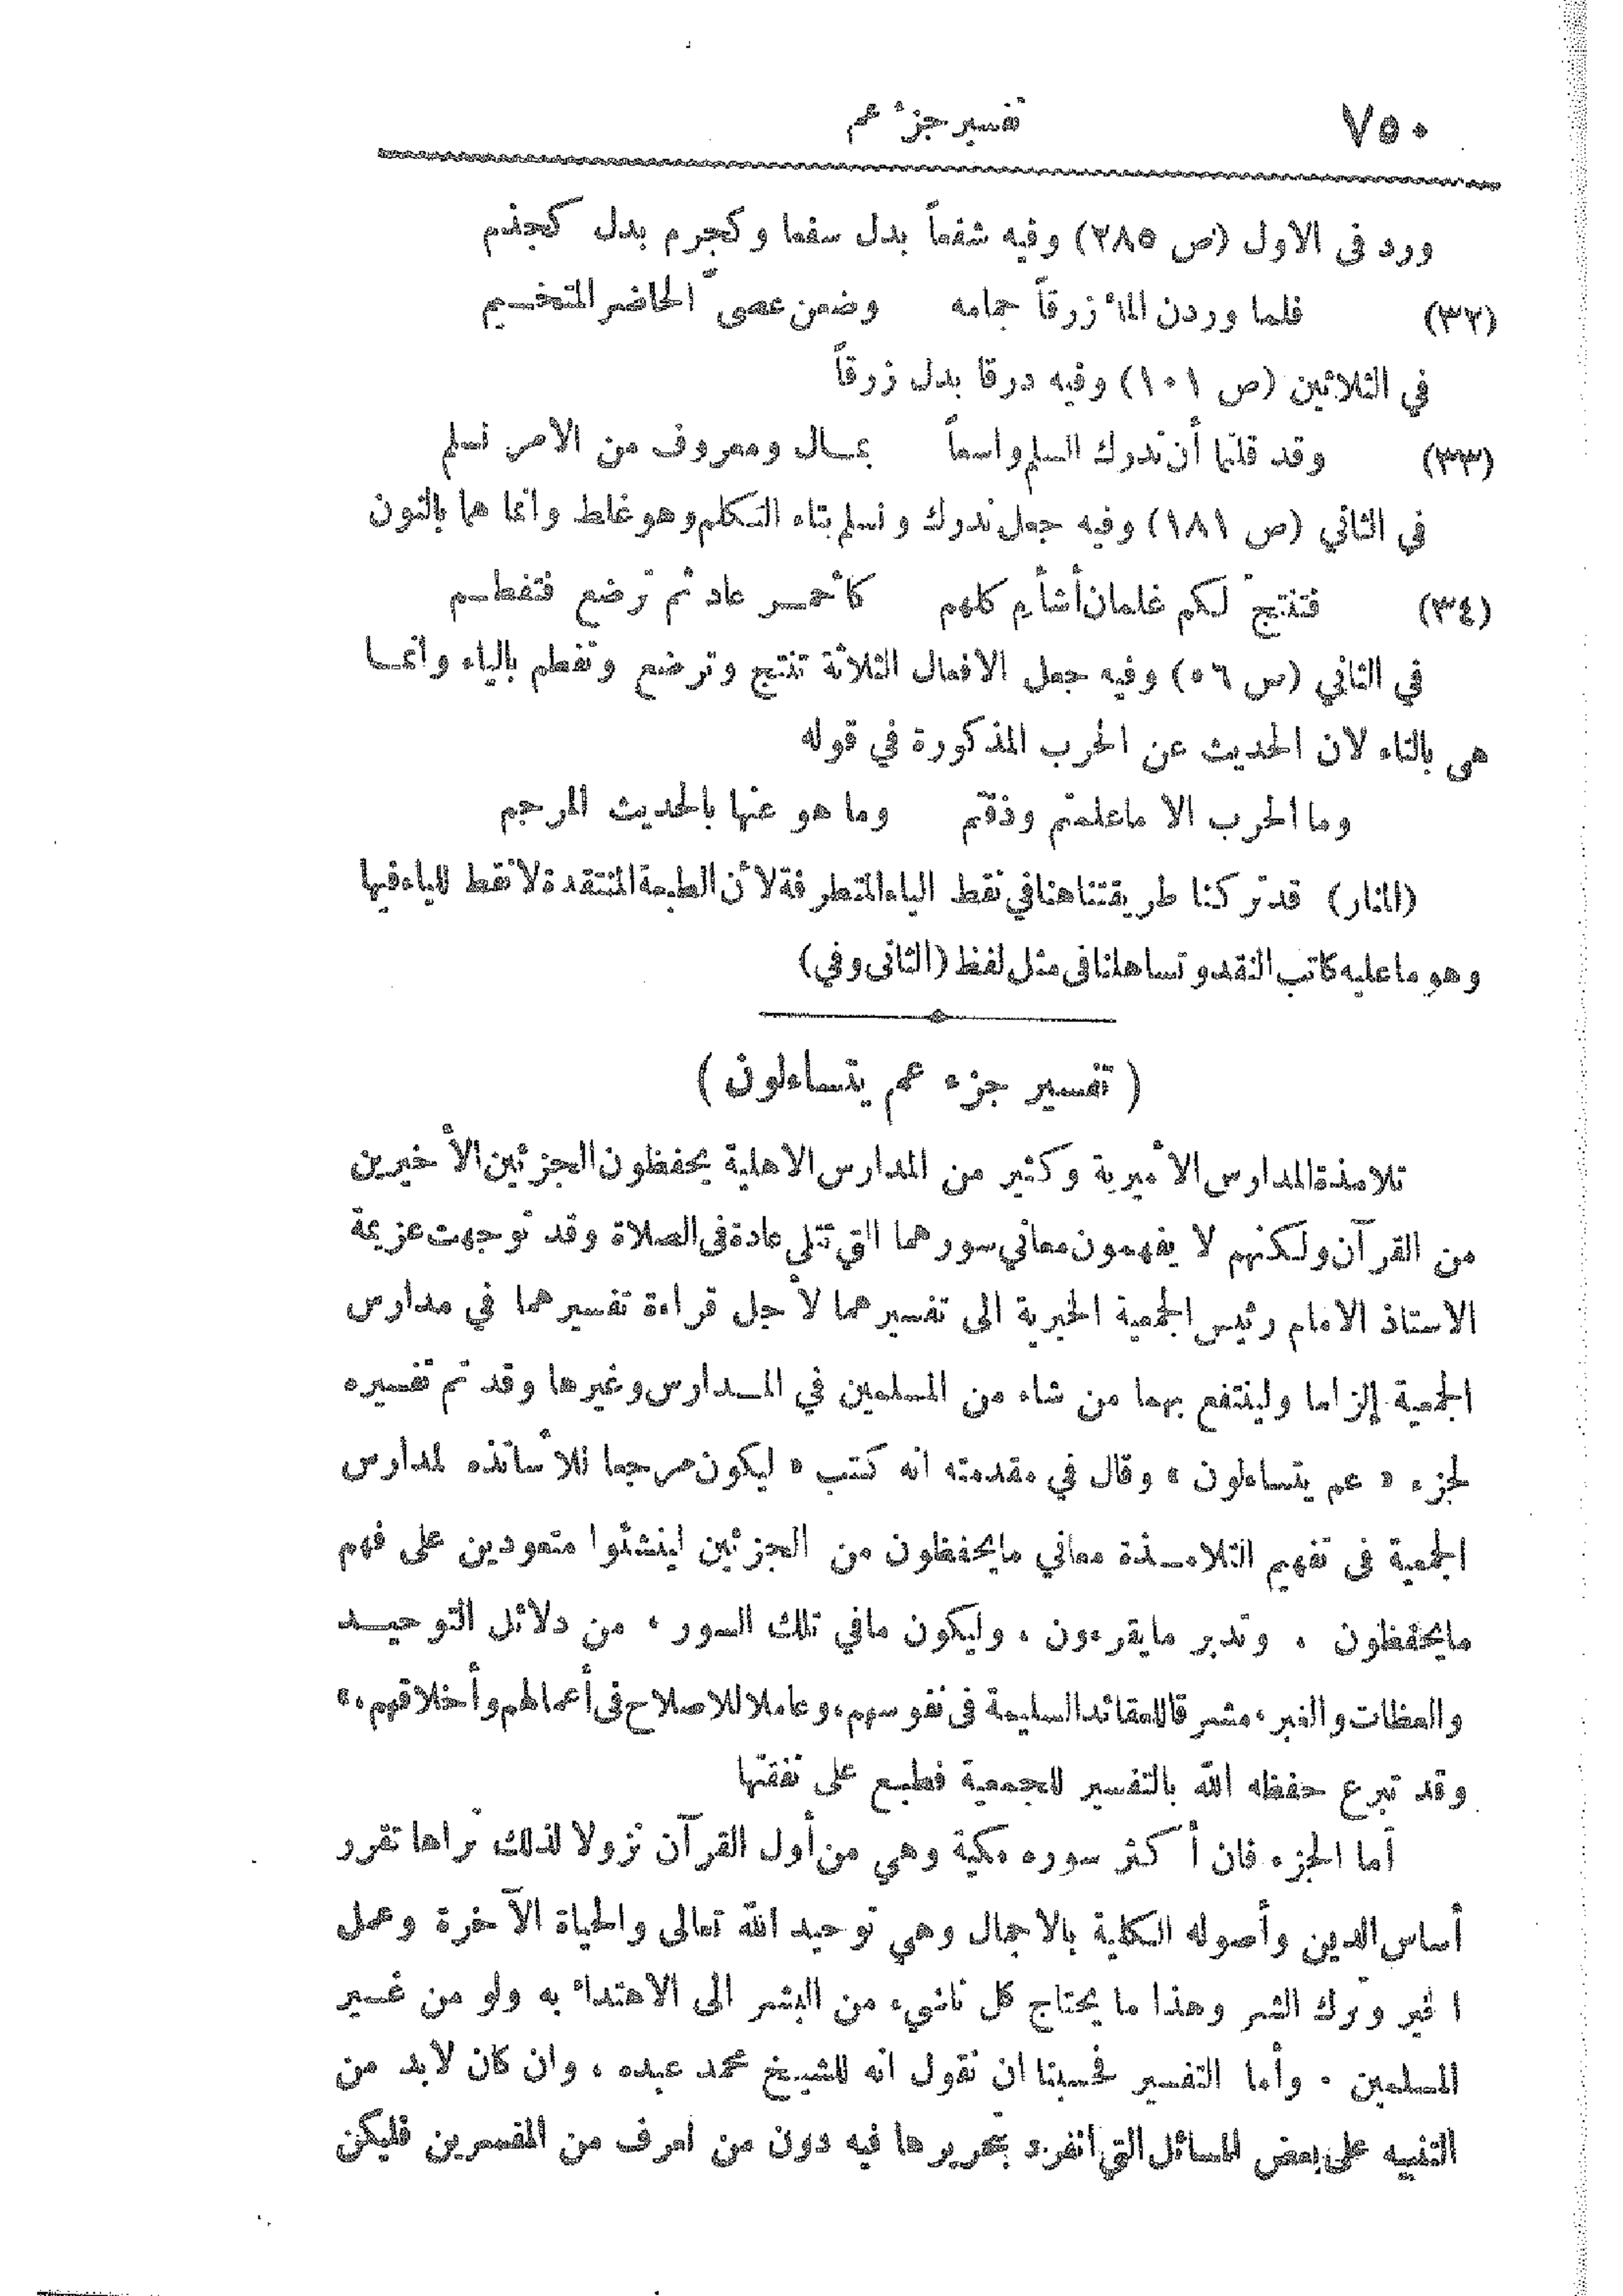 ٧٥٠ تفسير جزء عم
ورد فى الاول (ص ٢٨٥) وفيه شفعاً بدل سفعا وكجرم بدل كجذم
(٣٢) فلما وردن الماء زرقاً جمامه وضعن عصىّ الحاضر المتخيم
في الثلاثين (ص ١٠١) وفيه درقا بدل زرقاً
(٣٣) وقد قلتما أن ندرك السلم واسعاً بمال ومعروف من الامر نسلم
في الثاني (ص ١٨١) وفيه جعل ندرك ونسلم بتاء التكلم وهو غلط وانما هما بالنون
(٣٤) فتنتج لكم غلمان أشأم كلهم كأحمر عاد ثم ترضع فتفطم
في الثاني (ص ٥٦) وفيه جعل الافعال الثلاثة تنتج وترضع وتفطم بالياء وانما
هى بالتاء لان الحديث عن الحرب المذكورة في قوله
وما الحرب الا ماعلمتم وذقتم وما هو عنها بالحديث المرجم
(المنار) قد تركنا طريقتنا هنا في نقط الياء المتطرفة لأن الطبعة المنتقدة لا نقط للياء فيها
وهو ما عليه كاتب النقد وتساهلنا فى مثل لفظ (الثانى وفي)
( تفسير جزء عم يتساءلون )
تلامذة المدارس الأميرية وكثير من المدارس الاهلية يحفظون الجزئين الأخيرين
من القرآن ولكنهم لا يفهمون معاني سورهما التي تتلى عادة فى الصلاة وقد توجهت عزيمة
الاستاذ الامام رئيس الجمعية الخيرية الى تفسيرهما لأجل قراءة تفسيرهما في مدارس
الجمعية إلزاما ولينتفع بهما من شاء من المسلمين في المدارس وغيرها وقد تم تفسيره
لجزء « عم يتساءلون » وقال في مقدمته انه كتب « ليكون مرجعا للأساتذه لمدارس
الجمعية فى تفهيم التلامذة معاني مايحفظون من الجزئين لينشئوا متعودين على فهم
مايحفظون ، وتدبر مايقرءون ، وليكون مافي تلك السور ، من دلائل التوحيد
والعظات والغبر، مشرقا للعقائد السليمة فى نفوسهم، وعاملا للاصلاح فى أعمالهم وأخلاقهم، »
وقد تبرع حفظه الله بالتفسير للجمعية فطبع على نفقتها
أما الجزء فان أكثر سوره مكية وهي من أول القرآن نزولا لذلك تراها تقرر
أساس الدين وأصوله الكلية بالاجمال وهي توحيد الله تعالى والحياة الآخرة وعمل
الخير وترك الشر وهذا ما يحتاج كل ناشيء من البشر الى الاهتداء به ولو من غير
المسلمين ٠ وأما التفسير فحسبنا ان نقول انه للشيخ محمد عبده ، وان كان لابد من
التنبيه على بعض المسائل التي انفرد بتحريرها فيه دون من اعرف من المفسرين فليكن